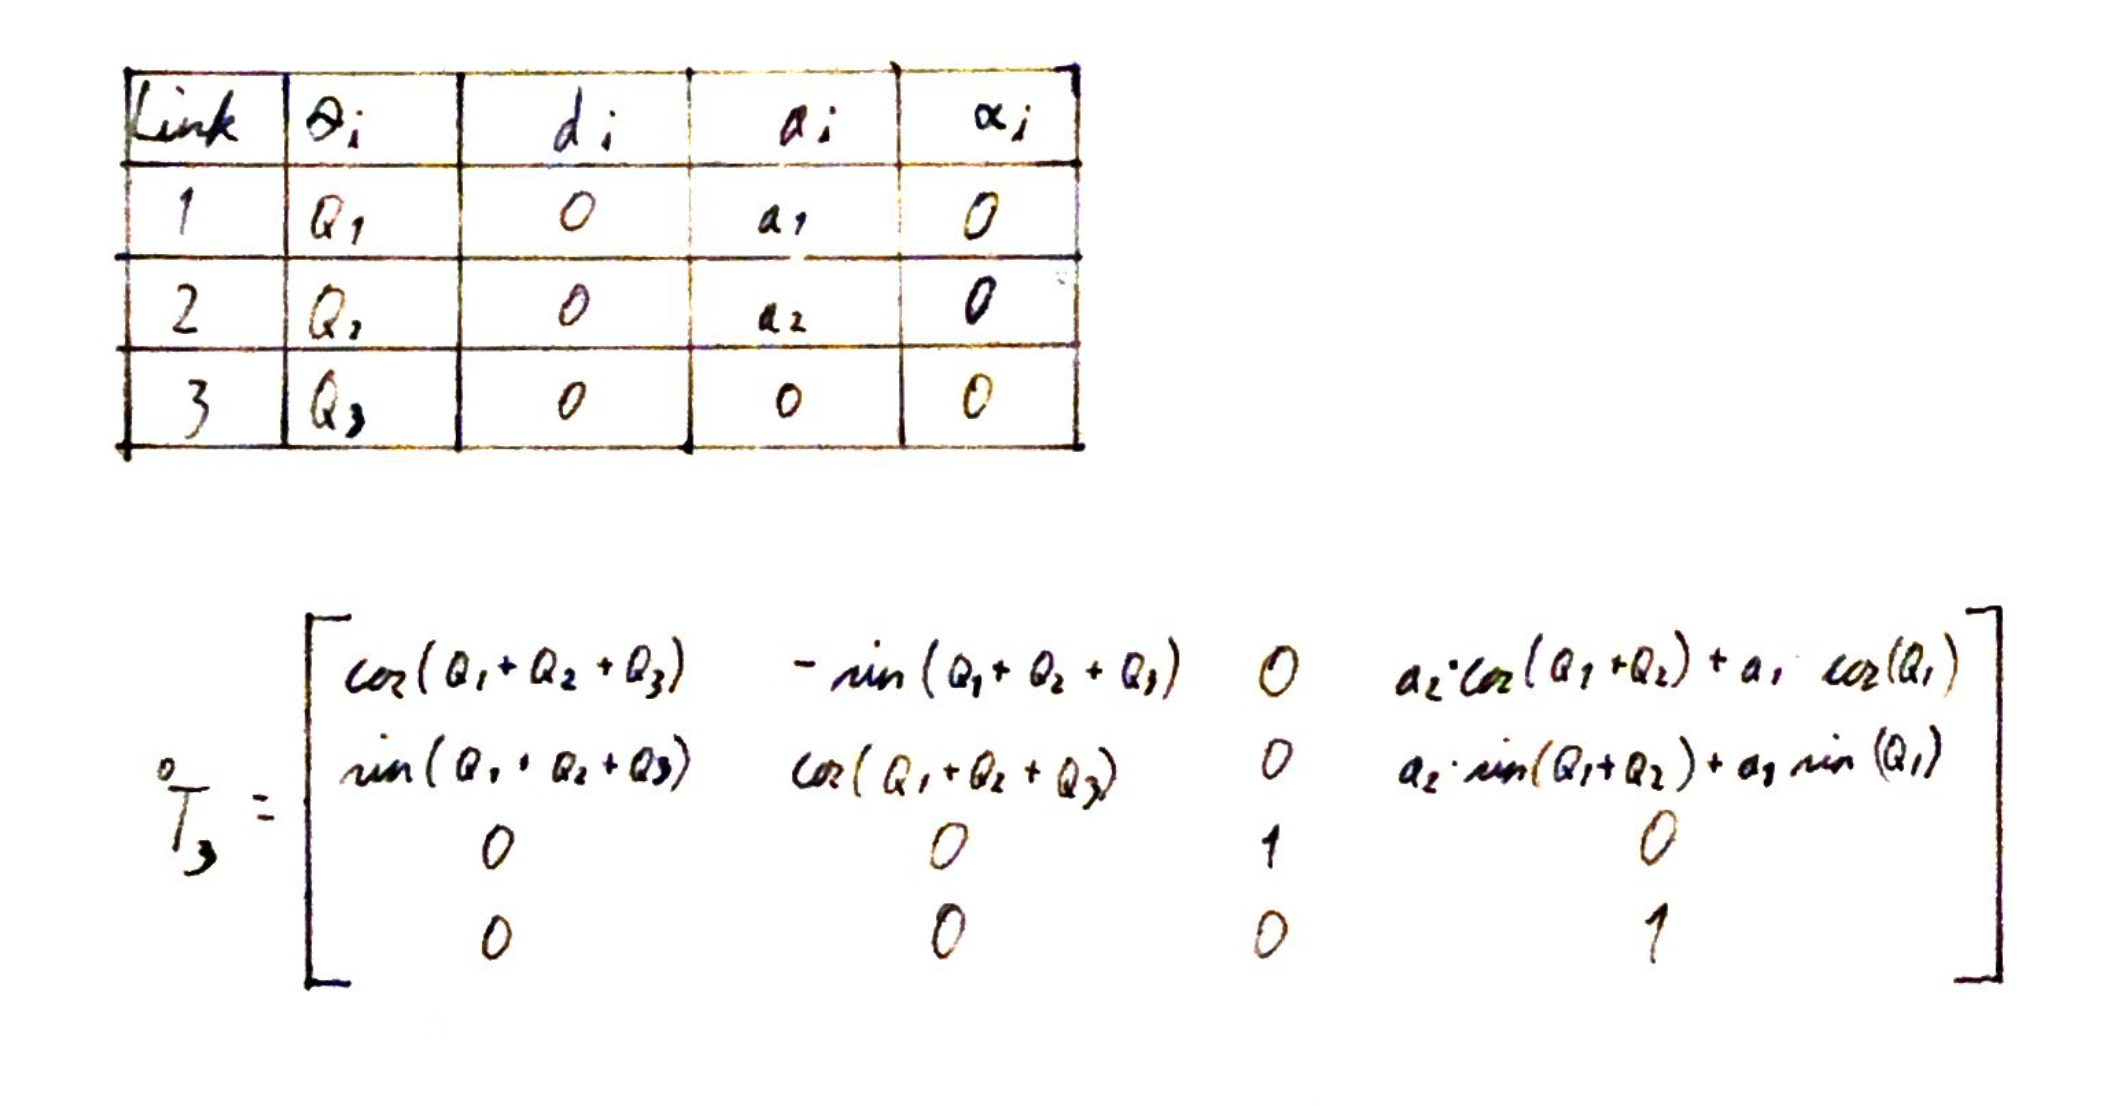 Link θi di ai αi
1 Q1 0 a1 0
2 Q2 0 a2 0
3 Q3 0 0 0
cos(Q1+Q2+Q3) -sin(Q1+Q2+Q3) 0 a2·cos(Q1+Q2)+a1·cos(Q1)
sin(Q1+Q2+Q3) cos(Q1+Q2+Q3) 0 a2·sin(Q1+Q2)+a1 sin(Q1)
⁰T₃ =
0 0 1 0
0 0 0 1